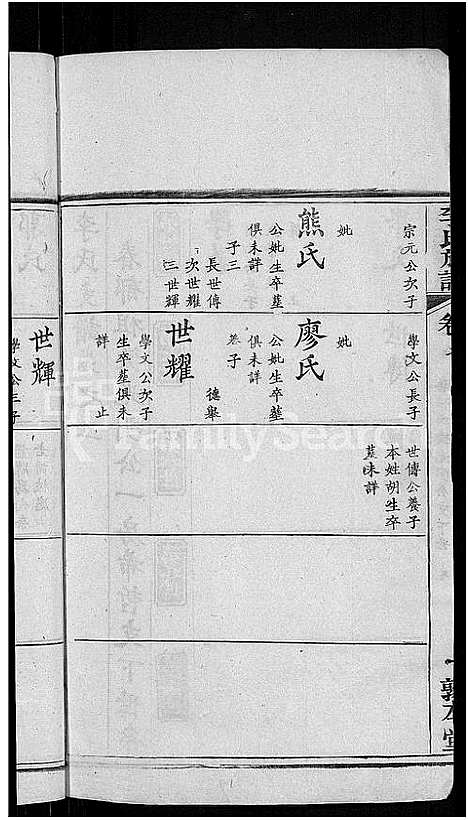 宗元公次子
妣
熊氏
公妣生卒塟
俱未詳
子三
長世傳
次世耀
三世輝
學文公長子
妣
廖氏
公妣生卒塟
俱未詳
養子
德舉
世耀
學文公次子
生卒塟俱未
詳 止
世傳公養子
本姓胡生卒
塟未詳
世輝
學文公三子
李氏族譜
卷
一
敦本堂
FamilySearch